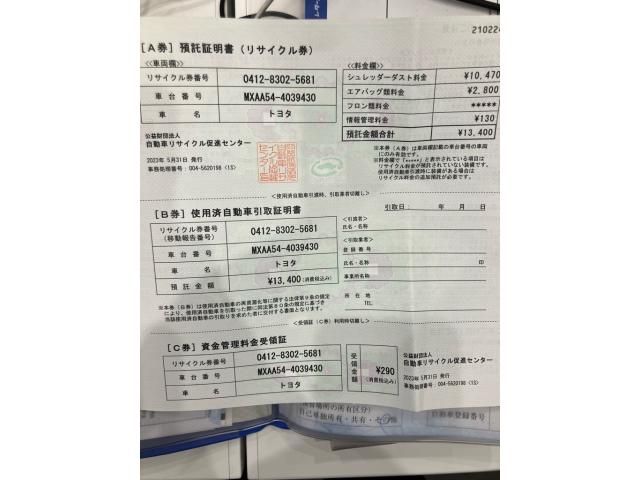 210224
[A券] 預託証明書(リサイクル券)
<<車両欄>>
リサイクル券番号 0412-8302-5681
車台番号 MXAA54-4039430
車名 トヨタ
公益財団法人
自動車リサイクル促進センター
2023年 5月31日 発行
事務処理番号:004-5620198 (1S)
<<料金欄>>
シュレッダーダスト料金 ¥10,470
エアバッグ類料金 ¥2,800
フロン類料金 *****
情報管理料金 ¥130
預託金額合計 ¥13,400
※本券(A券)は車両欄記載の車台番号の車両
にのみ有効です。
※料金欄で「*****」と表示されている項目は
リサイクル料金が預託されていない装備です。
使用済自動車引渡時に装備がある場合は
リサイクル料金の追加預託が必要です。
<使用済自動車引渡時、引取業者切離し>
[B券] 使用済自動車引取証明書
引取日: 年 月 日
リサイクル券番号
(移動報告番号) 0412-8302-5681
車台番号 MXAA54-4039430
車名 トヨタ
預託金額 ¥13,400 (消費税込み)
※本券(B券)は使用済自動車の再資源化等に関する法律第9条の規定
により、使用済自動車を引取った際に同法第80条の規定に基づき
当該使用済自動車の引取りを求めた者に交付する書面となります。
<引渡者>
氏名・名称
<引取業者>
登録番号
氏名・名称 印
事業所名称
所在地
TEL
<受領証(C券)利用時切離し>
[C券] 資金管理料金受領証
リサイクル券番号 0412-8302-5681
車台番号 MXAA54-4039430
車名 トヨタ
受領金額 ¥290
(消費税込み)
公益財団法人
自動車リサイクル促進センター
2023年 5月31日 発行
事務処理番号:004-5620198 (1S)
保管場所の所有区分)
自己単独所有・共有・その他
自動車登録番号